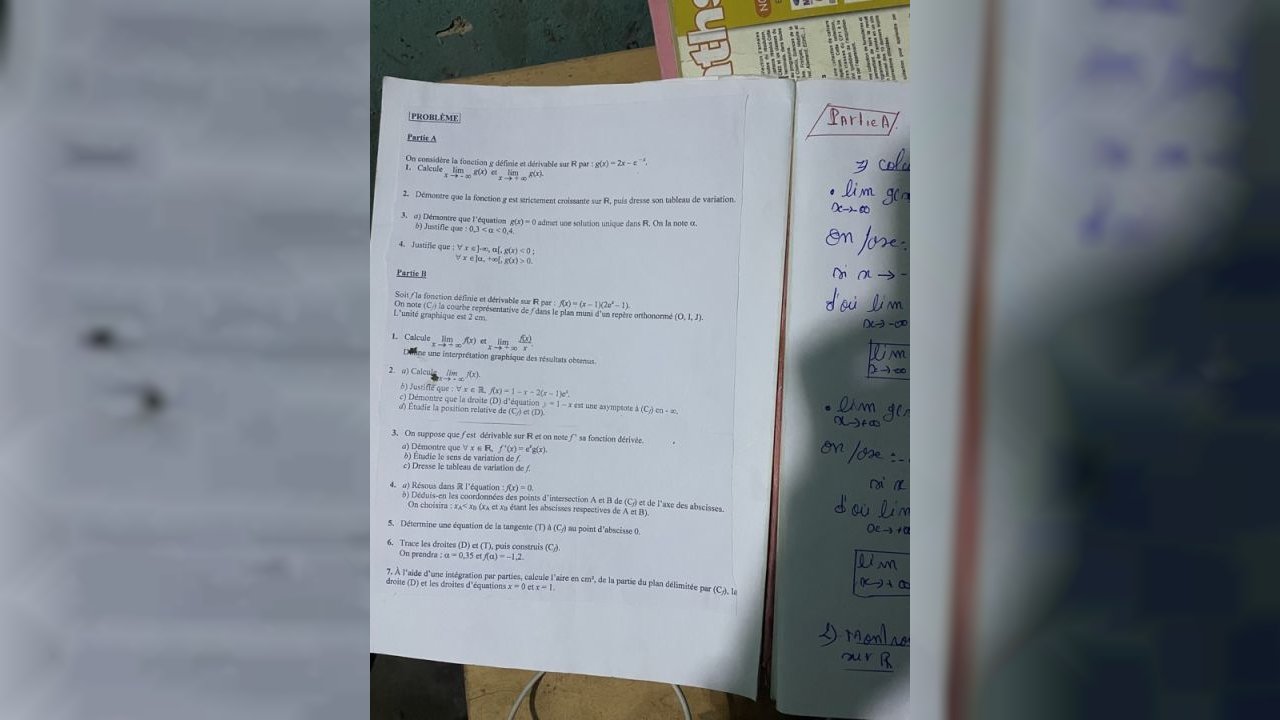 PROBLÈME
Partie A
On considère la fonction g définie et dérivable sur ℝ par : g(x) = 2x – e⁻ˣ.
1. Calcule lim x→–∞ g(x) et lim x→+∞ g(x).
2. Démontre que la fonction g est strictement croissante sur ℝ, puis dresse son tableau de variation.
3. a) Démontre que l'équation g(x) = 0 admet une solution unique dans ℝ. On la note α.
b) Justifie que : 0,3 < α < 0,4.
4. Justifie que : ∀ x ∈ ]–∞, α[, g(x) < 0 ;
∀ x ∈ ]α, +∞[, g(x) > 0.
Partie B
Soit f la fonction définie et dérivable sur ℝ par : f(x) = (x – 1)(2eˣ – 1).
On note (Cf) la courbe représentative de f dans le plan muni d'un repère orthonormé (O, I, J).
L'unité graphique est 2 cm.
1. Calcule lim x→+∞ f(x) et lim x→+∞ f(x)/x.
Donne une interprétation graphique des résultats obtenus.
2. a) Calcule lim f(x).
b) Justifie que : ∀ x ∈ ℝ, f(x) = 1 – x + 2(x – 1)eˣ.
c) Démontre que la droite (D) d'équation y = 1 – x est une asymptote à (Cf) en - ∞.
d) Étudie la position relative de (Cf) et (D).
3. On suppose que f est dérivable sur ℝ et on note f ' sa fonction dérivée.
a) Démontre que ∀ x ∈ ℝ, f '(x) = eˣg(x).
b) Étudie le sens de variation de f.
c) Dresse le tableau de variation de f.
4. a) Résous dans ℝ l'équation : f(x) = 0.
b) Déduis-en les coordonnées des points d'intersection A et B de (Cf) et de l'axe des abscisses.
On choisira : xA < xB (xA et xB étant les abscisses respectives de A et B).
5. Détermine une équation de la tangente (T) à (Cf) au point d'abscisse 0.
6. Trace les droites (D) et (T), puis construis (Cf).
On prendra : α = 0,35 et f(α) = –1,2.
7. À l'aide d'une intégration par parties, calcule l'aire en cm², de la partie du plan délimitée par (Cf), la
droite (D) et les droites d'équations x = 0 et x = 1.
Partie A
• lim
x→-∞
on pose :
si x → -
d'où lim
x→-∞
lim
x→-∞
• lim
x→+∞
on pose :
si x
d'où lim
x→+∞
lim
x→+∞
2)
sur ℝ